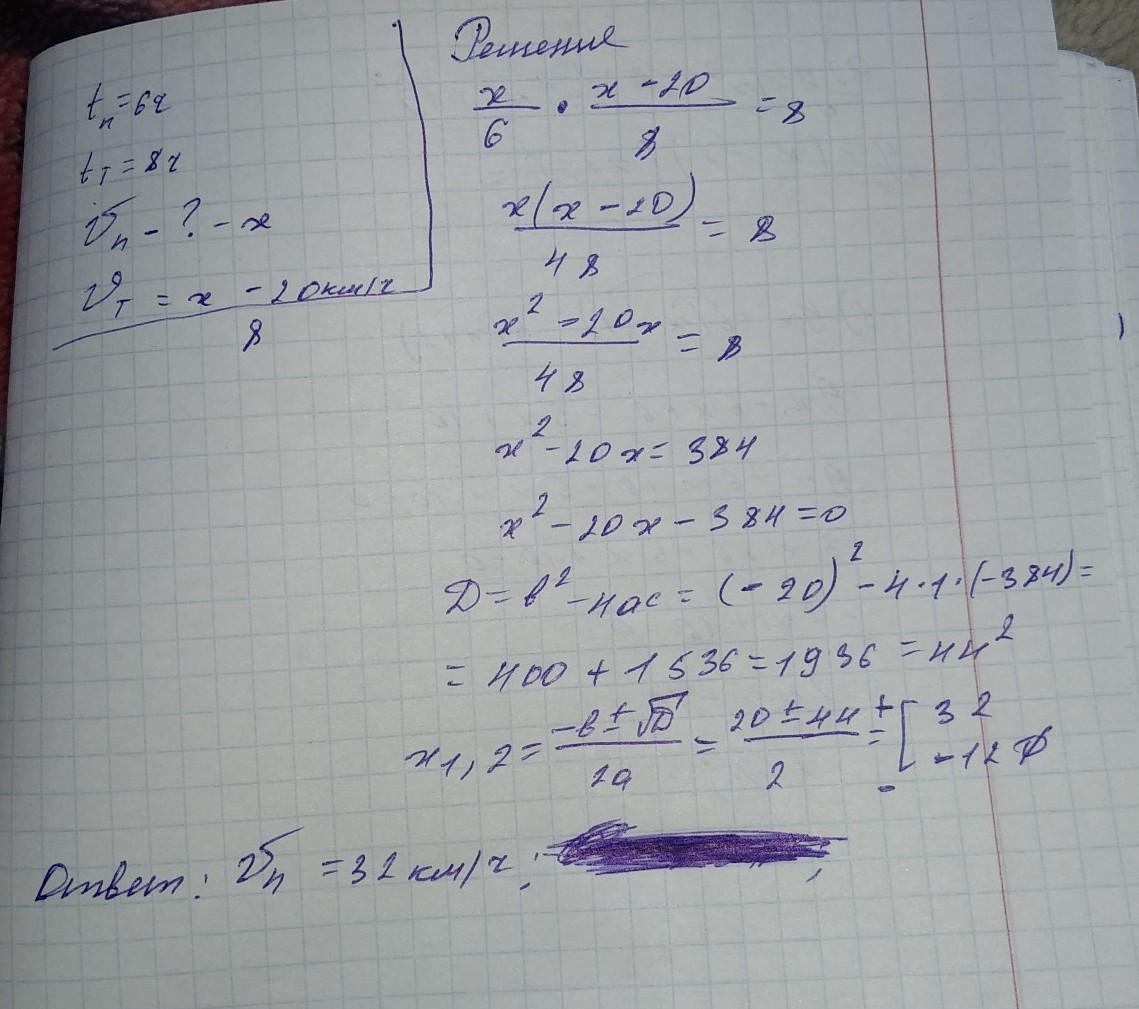 tп = 6ч
tт = 8ч
𝑣п - ? - x
𝑣т = x - 20км/ч
8
Решение
x/6 · (x - 20)/8 = 8
x(x - 20)/48 = 8
(x² - 20x)/48 = 8
x² - 20x = 384
x² - 20x - 384 = 0
Д = в² - 4ас = (-20)² - 4·1·(-384) =
= 400 + 1536 = 1936 = 44²
x1,2 = (-в ± √D)/2a = (20 ± 44)/2 = [ 32
-12 ∅
Ответ: 𝑣п = 32 км/ч;